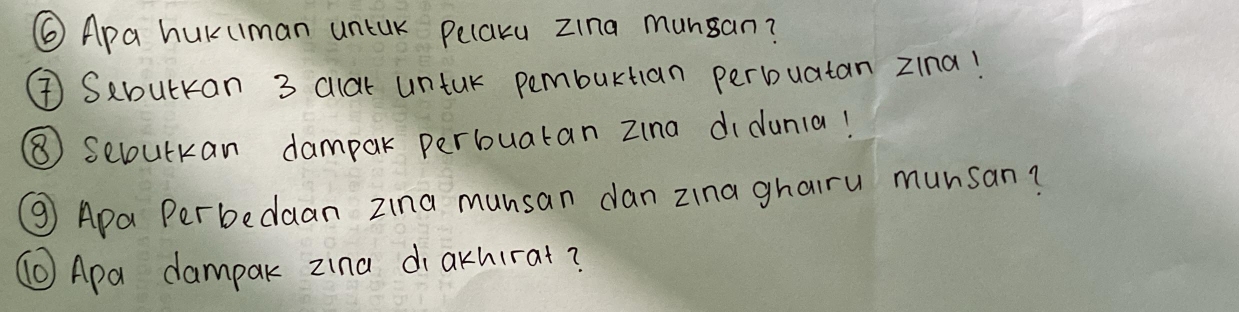 ⑥ Apa hukuman untuk pelaku zina muhsan?
⑦ Sebutkan 3 alat untuk pembuktian perbuatan zina!
⑧ Sebutkan dampak perbuatan zina didunia!
⑨ Apa Perbedaan zina muhsan dan zina ghairu muhsan?
⑩ Apa dampak zina di akhirat?